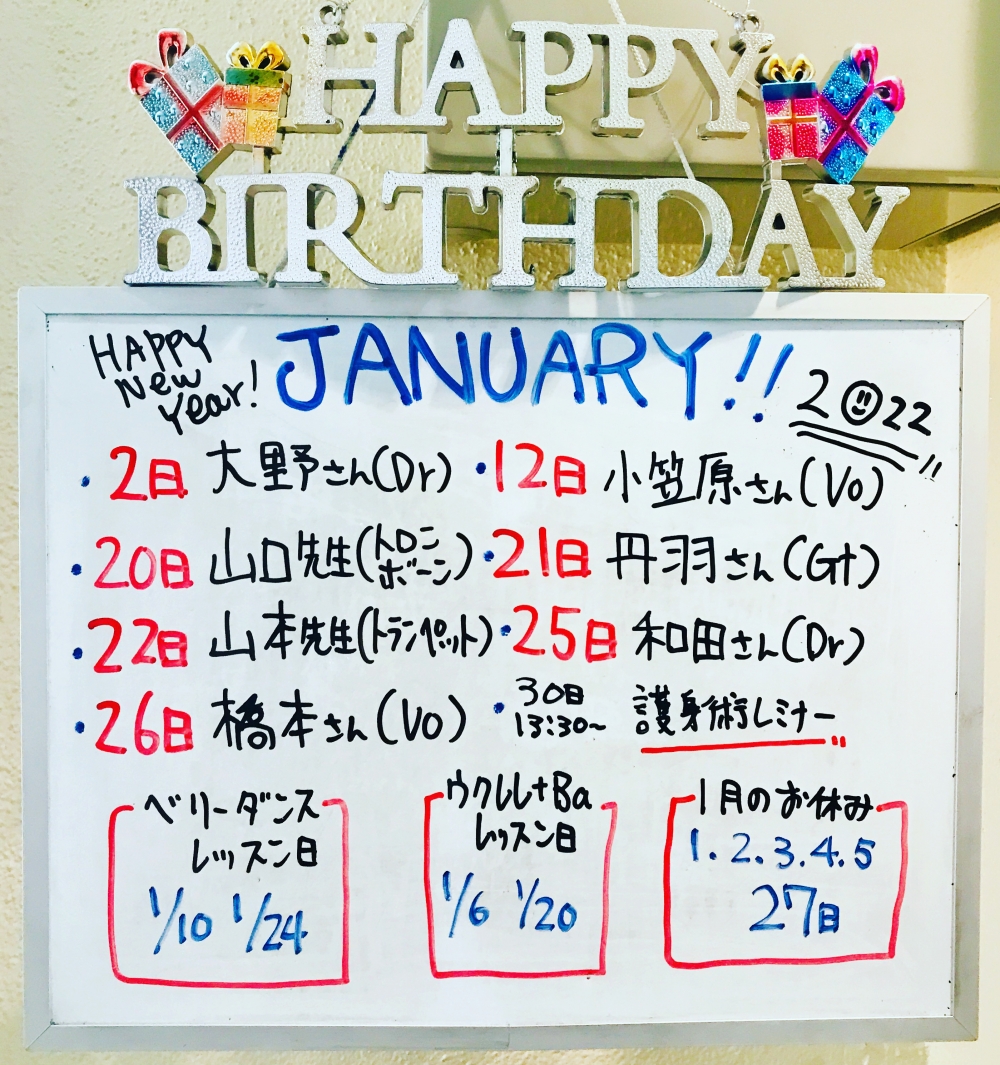 HAPPY
BIRTHDAY
HAPPY
New
Year!
JANUARY!!
2022
・2日 大野さん(Dr)
・12日 小笠原さん(Vo)
・20日 山口先生(トロンボーン)
・21日 丹羽さん(Gt)
・22日 山本先生(トランペット)
・25日 和田さん(Dr)
・26日 橋本さん(Vo)
・30日
13:30~
護身術レミナー
ベリーダンス
レッスン日
1/10 1/24
ウクレレ+Ba
レッスン日
1/6 1/20
1月のお休み
1.2.3.4.5
27日